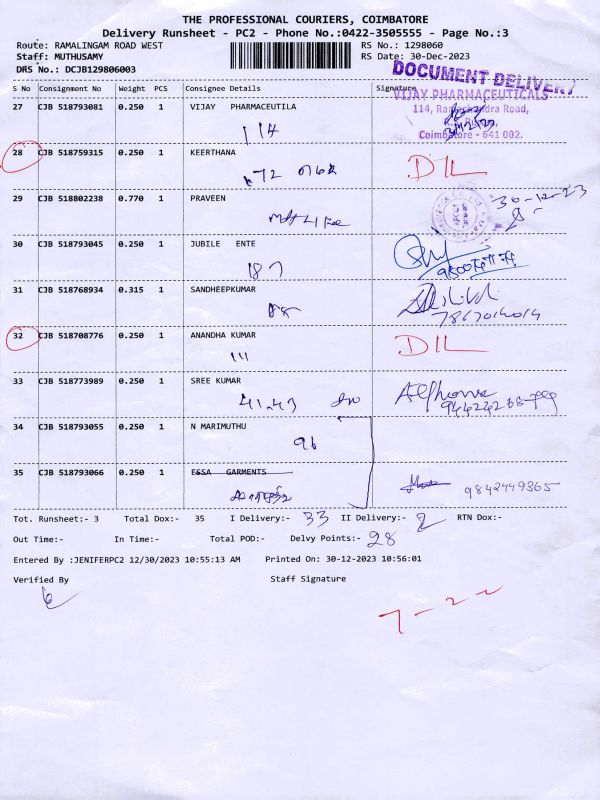 THE PROFESSIONAL COURIERS, COIMBATORE
Delivery Runsheet - PC2 - Phone No.:0422-3505555 - Page No.:3
Route: RAMALINGAM ROAD WEST RS No.: 1298060
Staff: MUTHUSAMY RS Date: 30-Dec-2023
DRS No.: DCJB129806003
DOCUMENT DELIVERY
S No Consignment No Weight PCS Consignee Details Signature
VIJAY PHARMACEUTICALS
27 CJB 518793081 0.250 1 VIJAY PHARMACEUTILA
114, Ramachandra Road,
114
Coimbatore - 641 002.
28 CJB 518759315 0.250 1 KEERTHANA
72 DIL
29 CJB 518802238 0.770 1 PRAVEEN
30-12-23
30 CJB 518793045 0.250 1 JUBILE ENTE
187
31 CJB 518768934 0.315 1 SANDHEEPKUMAR
32 CJB 518708776 0.250 1 ANANDHA KUMAR
111 DIL
33 CJB 518773989 0.250 1 SREE KUMAR
41.43 Alphonse
34 CJB 518793055 0.250 1 N MARIMUTHU
96
35 CJB 518793066 0.250 1 ESSA GARMENTS
9842449365
Tot. Runsheet:- 3 Total Dox:- 35 I Delivery:- 33 II Delivery:- 2 RTN Dox:-
Out Time:- In Time:- Total POD:- Delvy Points:- 28
Entered By :JENIFERPC2 12/30/2023 10:55:13 AM Printed On: 30-12-2023 10:56:01
Verified By Staff Signature
7-22